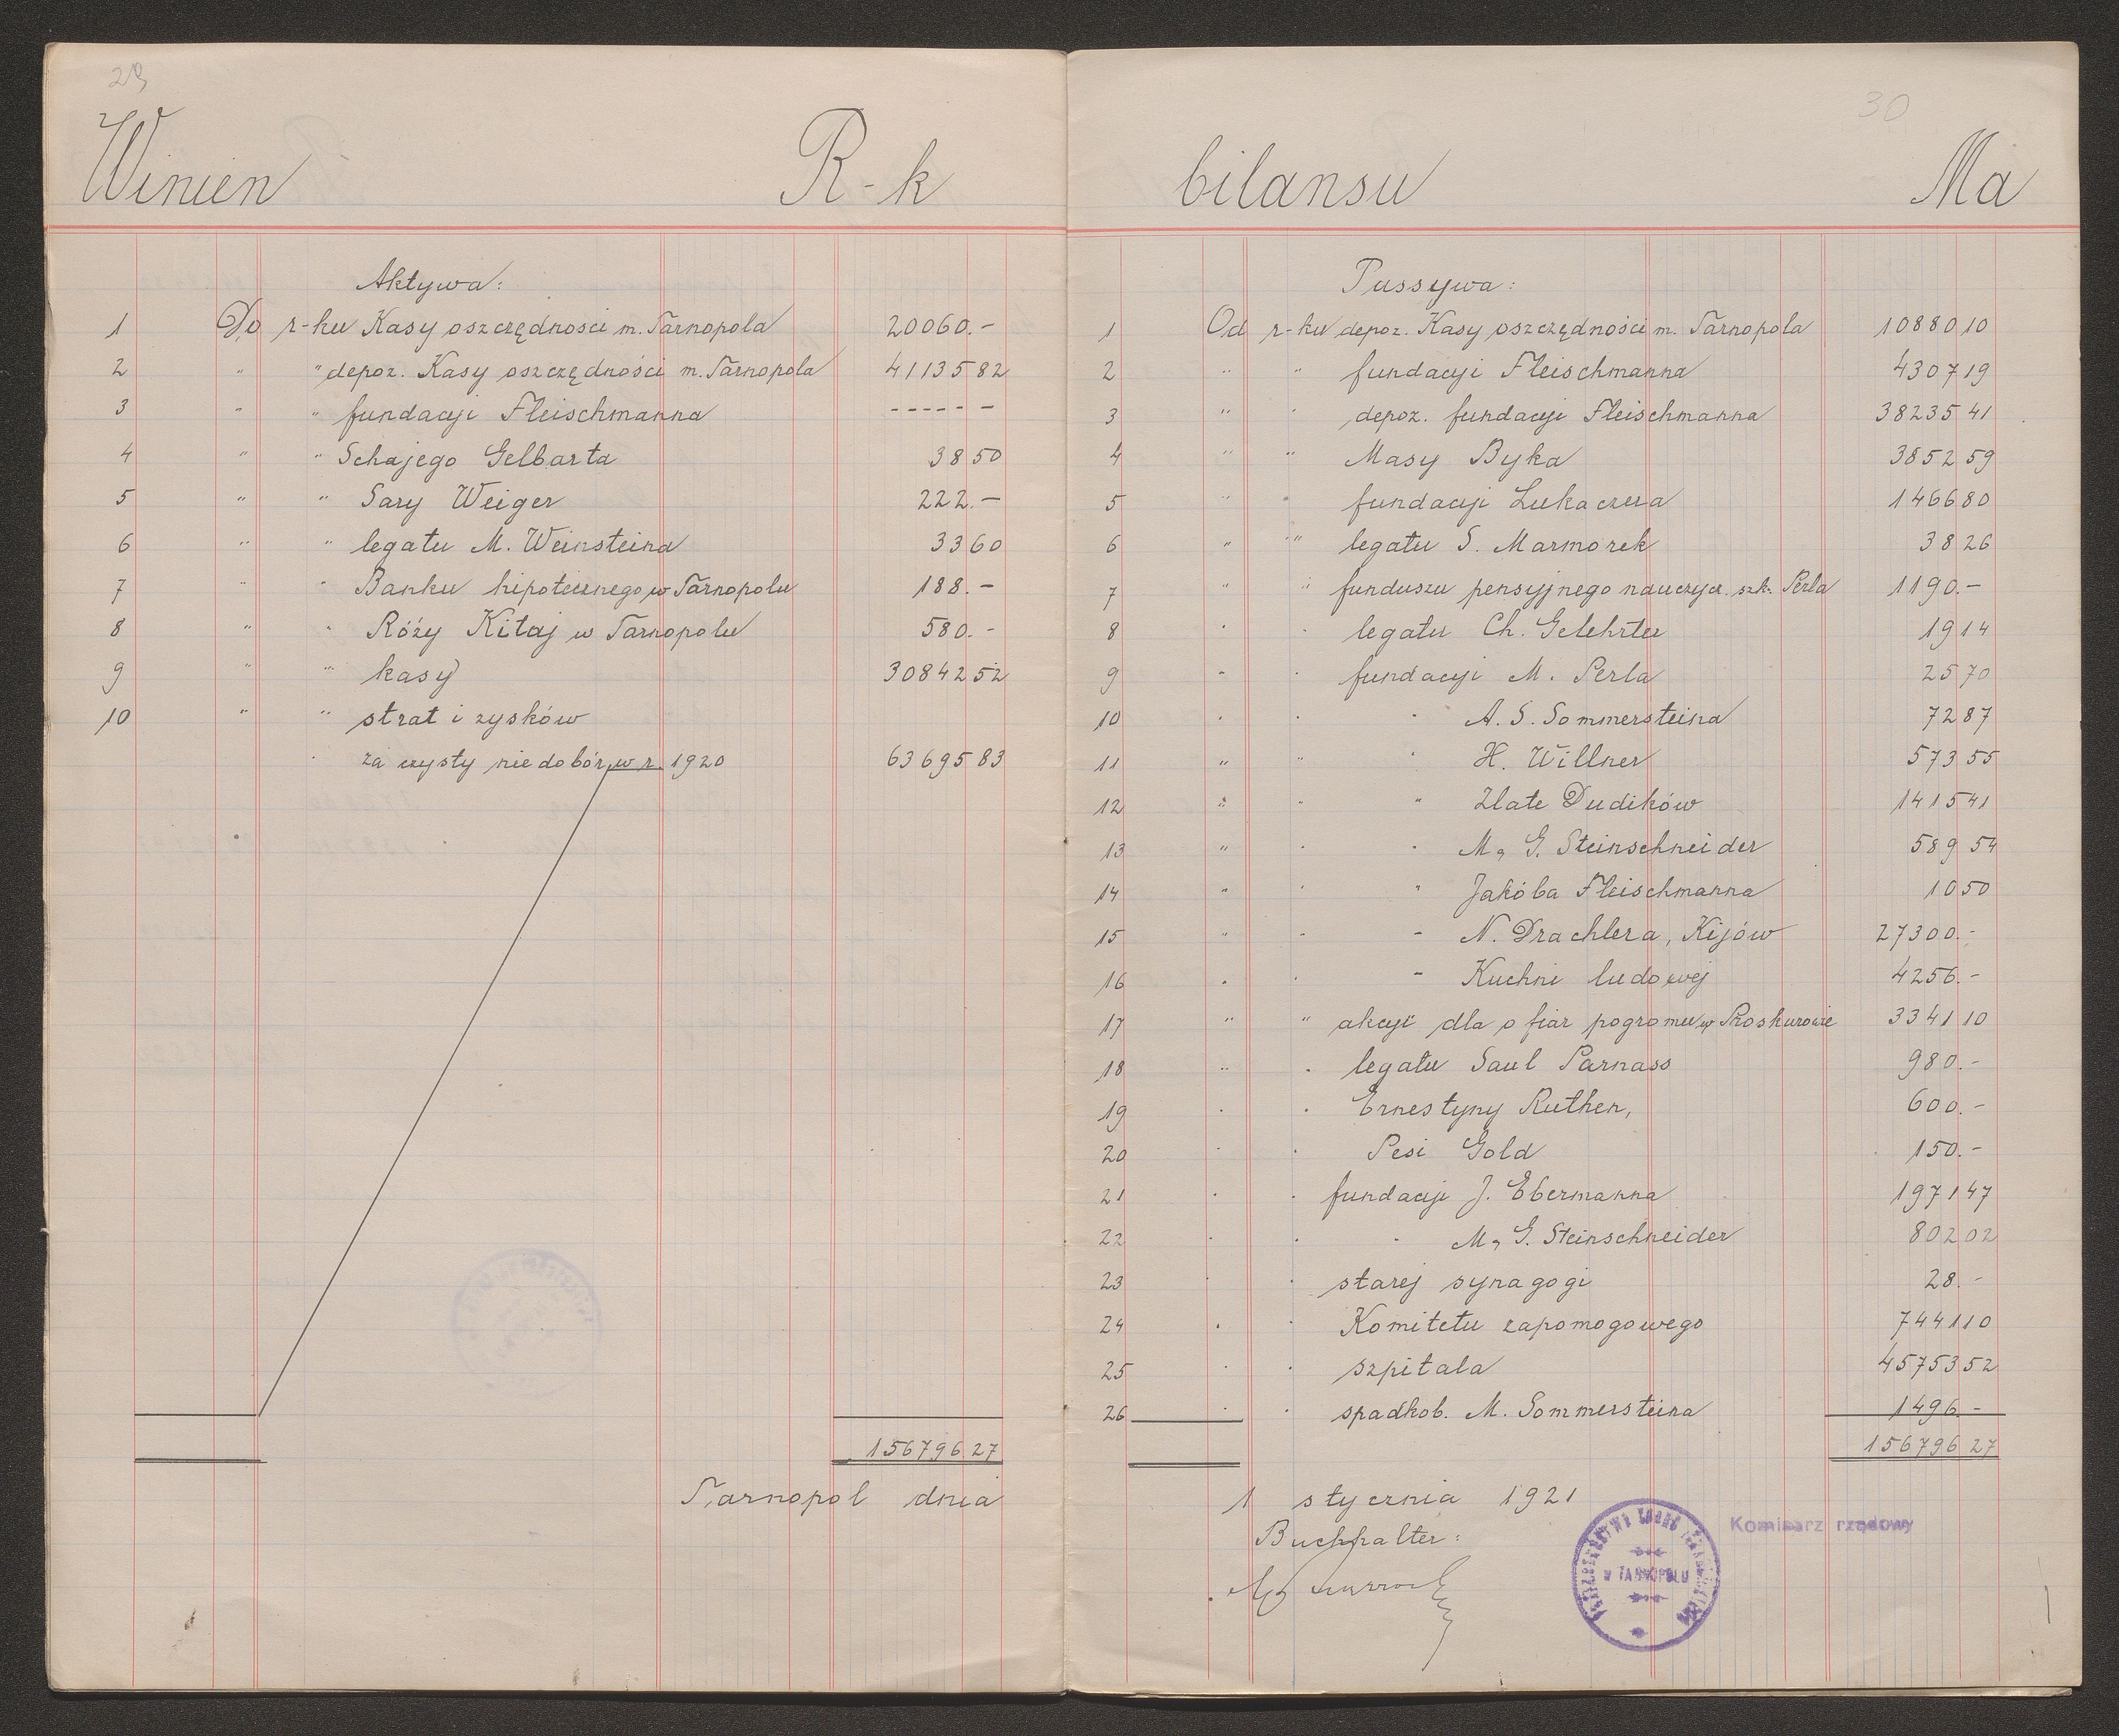 29
Winien R-k
Aktywa:
1 Do r-ku Kasy oszczędności m. Tarnopola 20060.-
2 " " depoz. Kasy oszczędności m. Tarnopola 41135 82
3 " " fundacyi Fleischmanna ------
4 " " Schajego Gelbarta 38 50
5 " " Sary Weiger 222.-
6 " " legatu M. Weinsteina 33 60
7 " " Banku hipotecznego w Tarnopolu 188.-
8 " " Róży Kitaj w Tarnopolu 580.-
9 " " kasy 30842 52
10 " " strat i zysków
za czysty niedobór w r. 1920 63695 83
156796 27
Tarnopol dnia
30
bilansu Ma
Passywa:
1 Od r-ku depoz. Kasy oszczędności m. Tarnopola 10880 10
2 " " fundacyi Fleischmanna 4307 19
3 " " depoz. fundacyi Fleischmanna 38235 41
4 " " Masy Byka 3852 59
5 " " fundacyi Lukaczera 1466 80
6 " " legatu S. Marmorek 38 26
7 " " funduszu pensyjnego nauczyc. szk. Perla 1190.-
8 " " legatu Ch. Gelehrter 19 14
9 " " fundacyi M. Perla 25 70
10 " " " A. S. Sommersteina 72 87
11 " " " H. Willner 573 55
12 " " " Zlate Dudików 1415 41
13 " " " M. G. Steinschneider 589 54
14 " " " Jakóba Fleischmanna 10 50
15 " " " N. Drachlera, Kijów 27300.-
16 " " " Kuchni ludowej 4256.-
17 " " akcyi dla ofiar pogromu w Proskurowie 3341 10
18 " " legatu Saul Parnass 980.-
19 " " Ernestyny Ruthen, 600.-
20 " " Pesi Gold 150.-
21 " " fundacyi J. Ebermanna 1971 47
22 " " " M. G. Steinschneider 802 02
23 " " starej synagogi 28.-
24 " " Komitetu zapomogowego 7441 10
25 " " szpitala 45753 52
26 " " spadkob. M. Sommersteina 1496.-
156796 27
1 stycznia 1921
Buchhalter:
Komisarz rządowy
W TARNOPOLU